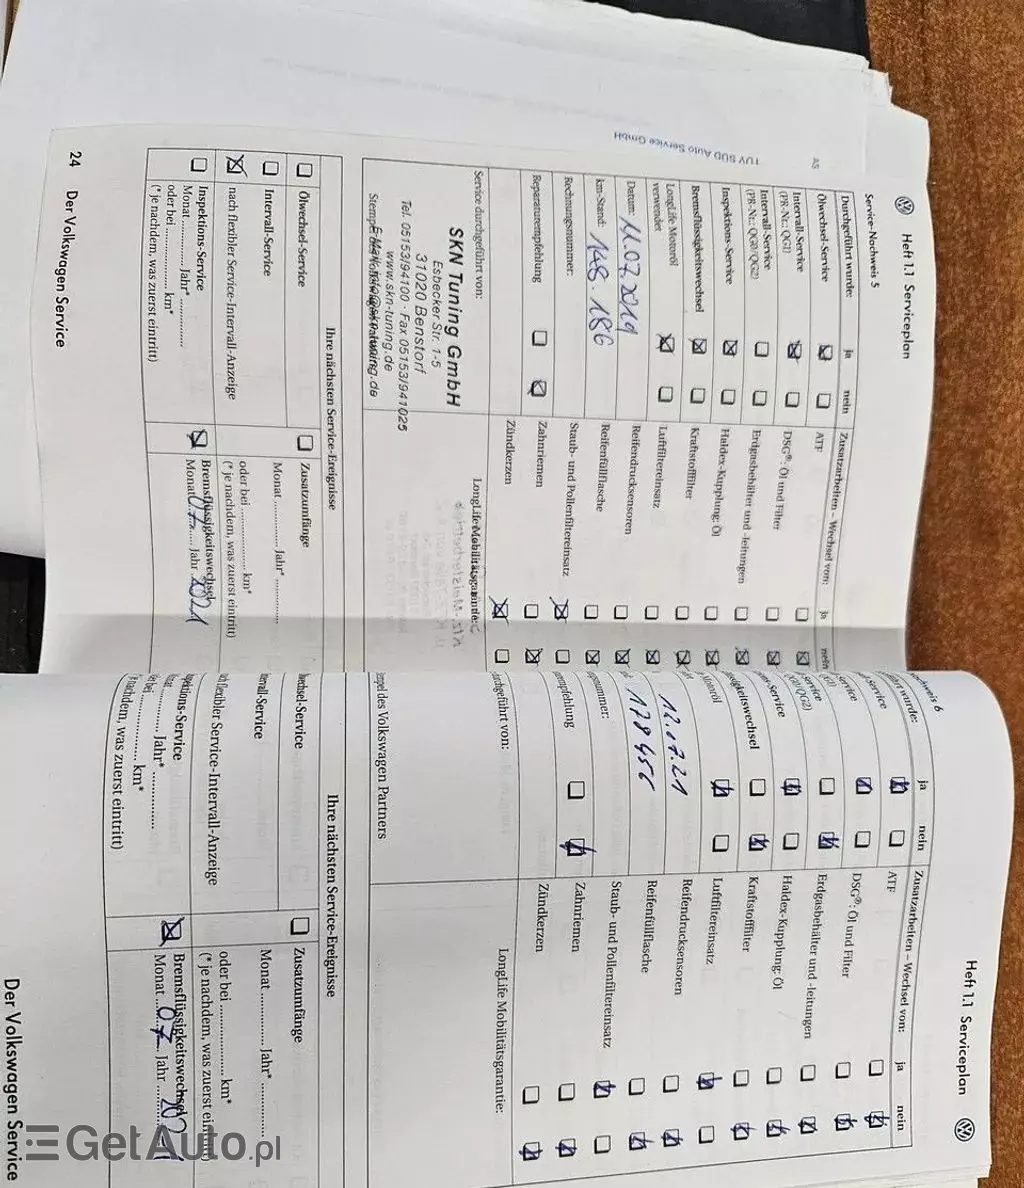 TÜV SÜD Auto Service GmbH
AS
Heft 1.1 Serviceplan
Service-Nachweis 5
Durchgeführt wurde: ja nein
Ölwechsel-Service
Intervall-Service
(PR-Nr.: QG1)
Intervall-Service
(PR-Nr.: QG0/QG2)
Inspektions-Service
Bremsflüssigkeitswechsel
LongLife Motoröl
verwendet
Datum: 11.07.2019
km-Stand: 148.186
Rechnungsnummer:
Reparaturempfehlung
Zusatzarbeiten – Wechsel von: ja nein
ATF
DSG®: Öl und Filter
Erdgasbehälter und -leitungen
Haldex-Kupplung: Öl
Kraftstofffilter
Luftfiltereinsatz
Reifendrucksensoren
Reifenfüllflasche
Staub- und Pollenfiltereinsatz
Zahnriemen
Zündkerzen
Service durchgeführt von:
SKN Tuning GmbH
Esbecker Str. 1-5
31020 Benstorf
Tel. 05153/94100 · Fax 05153/941025
www.skn-tuning.de
LongLife Mobilitätsgarantie:
Ihre nächsten Service-Ereignisse
Ölwechsel-Service
Intervall-Service
nach flexibler Service-Intervall-Anzeige
Inspektions-Service
Monat Jahr*
oder bei km*
(*je nachdem, was zuerst eintritt)
Zusatzumfänge
Monat Jahr*
oder bei km*
(*je nachdem, was zuerst eintritt)
Bremsflüssigkeitswechsel
Monat 07 Jahr 2021
24 Der Volkswagen Service
Heft 1.1 Serviceplan
Nachweis 6
wurde: ja nein
Service
Service
Service
QG2)
Service
igkeitswechsel
Motoröl
12.07.21
178456
nummer:
empfehlung
Zusatzarbeiten – Wechsel von: ja nein
ATF
DSG®: Öl und Filter
Erdgasbehälter und -leitungen
Haldex-Kupplung: Öl
Kraftstofffilter
Luftfiltereinsatz
Reifendrucksensoren
Reifenfüllflasche
Staub- und Pollenfiltereinsatz
Zahnriemen
Zündkerzen
urchgeführt von:
empel des Volkswagen Partners
LongLife Mobilitätsgarantie:
Ihre nächsten Service-Ereignisse
wechsel-Service
ervall-Service
ch flexibler Service-Intervall-Anzeige
pektions-Service
Jahr*
er bei km*
nachdem, was zuerst eintritt)
Zusatzumfänge
Monat Jahr*
oder bei km*
(*je nachdem, was zuerst eintritt)
Bremsflüssigkeitswechsel
Monat 07 Jahr
Der Volkswagen Service
GetAuto.pl